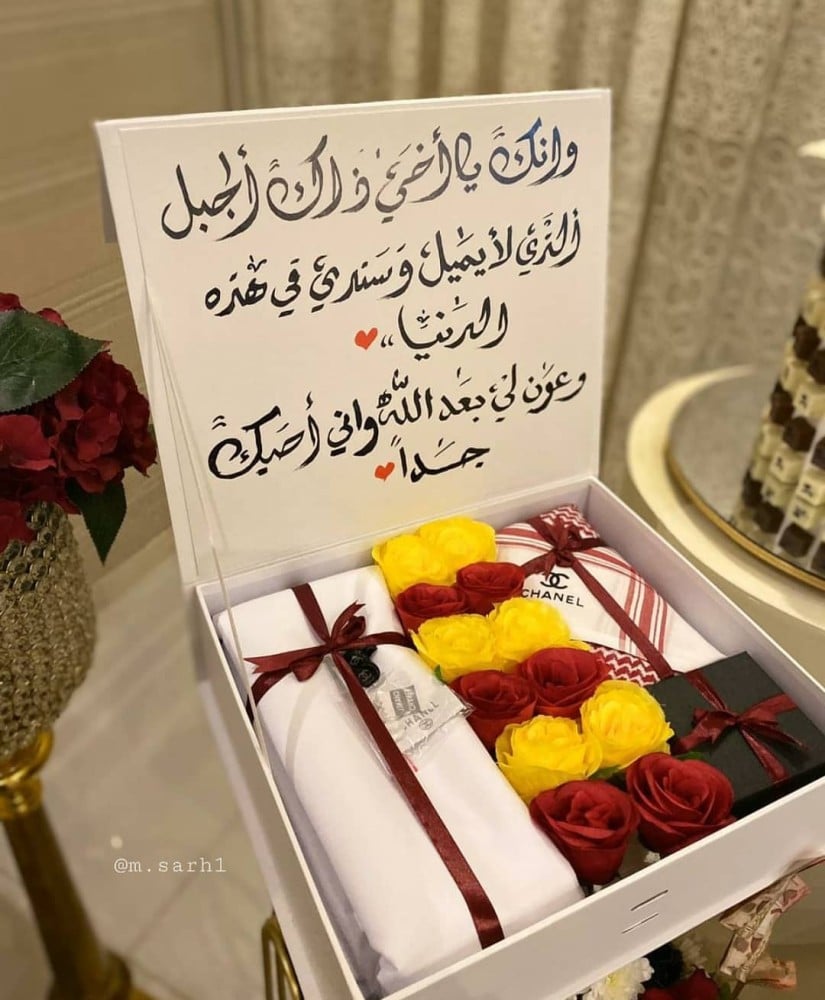 وانك يا أخي ذاك ألجبل
ألذي لا يميل وسندي في هذه
الدنيا ،،
وعون لي بعد الله واني أحبك
جداً
CHANEL
CHANEL
@m.sarh1